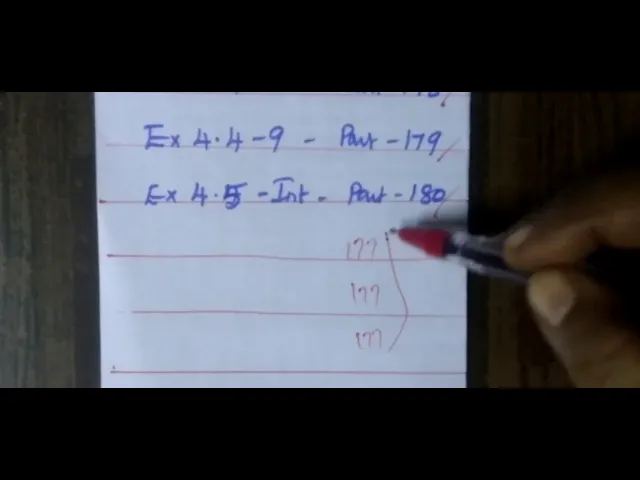 Ex 4.4 - 9 - Part - 179
Ex 4.5 - Int - Part - 180
177
177
177